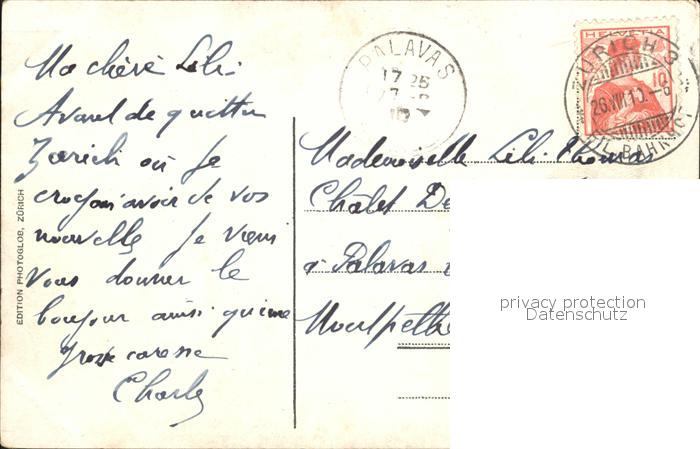 Ma chère Lili
Avant de quitter
Zurich où je
croyais avoir de vos
nouvelles je viens
vous donner le
bonjour ainsi qu'une
grosse caresse
Charles
EDITION PHOTOGLOB, ZÜRICH
PALAVAS
17 25
HELVETIA
10
ZÜRICH 3
26.VII.10.-6
FIL. BAHNHOF
Mademoiselle Lili Thomas
Châlet De
à Palavas
Montpellie
privacy protection
Datenschutz